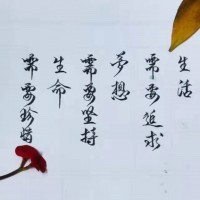 生活
需要追求
夢想
需要坚持
生命
需要珍惜